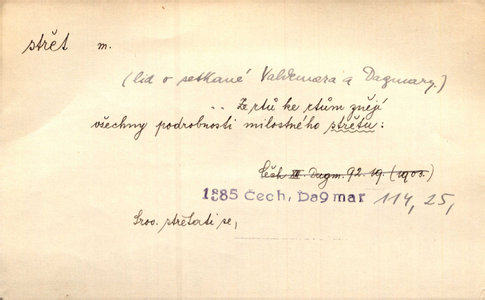 střět m.
(lid o setkání Valdemara a Dagmary.)
.. Ze rtů ke rtům znějí
všechny podrobnosti milostného střětu:
Čech III. Dagm. 92. 19. (1908.)
1885 Čech, Dagmar 114, 25,
Srov. střetati se,